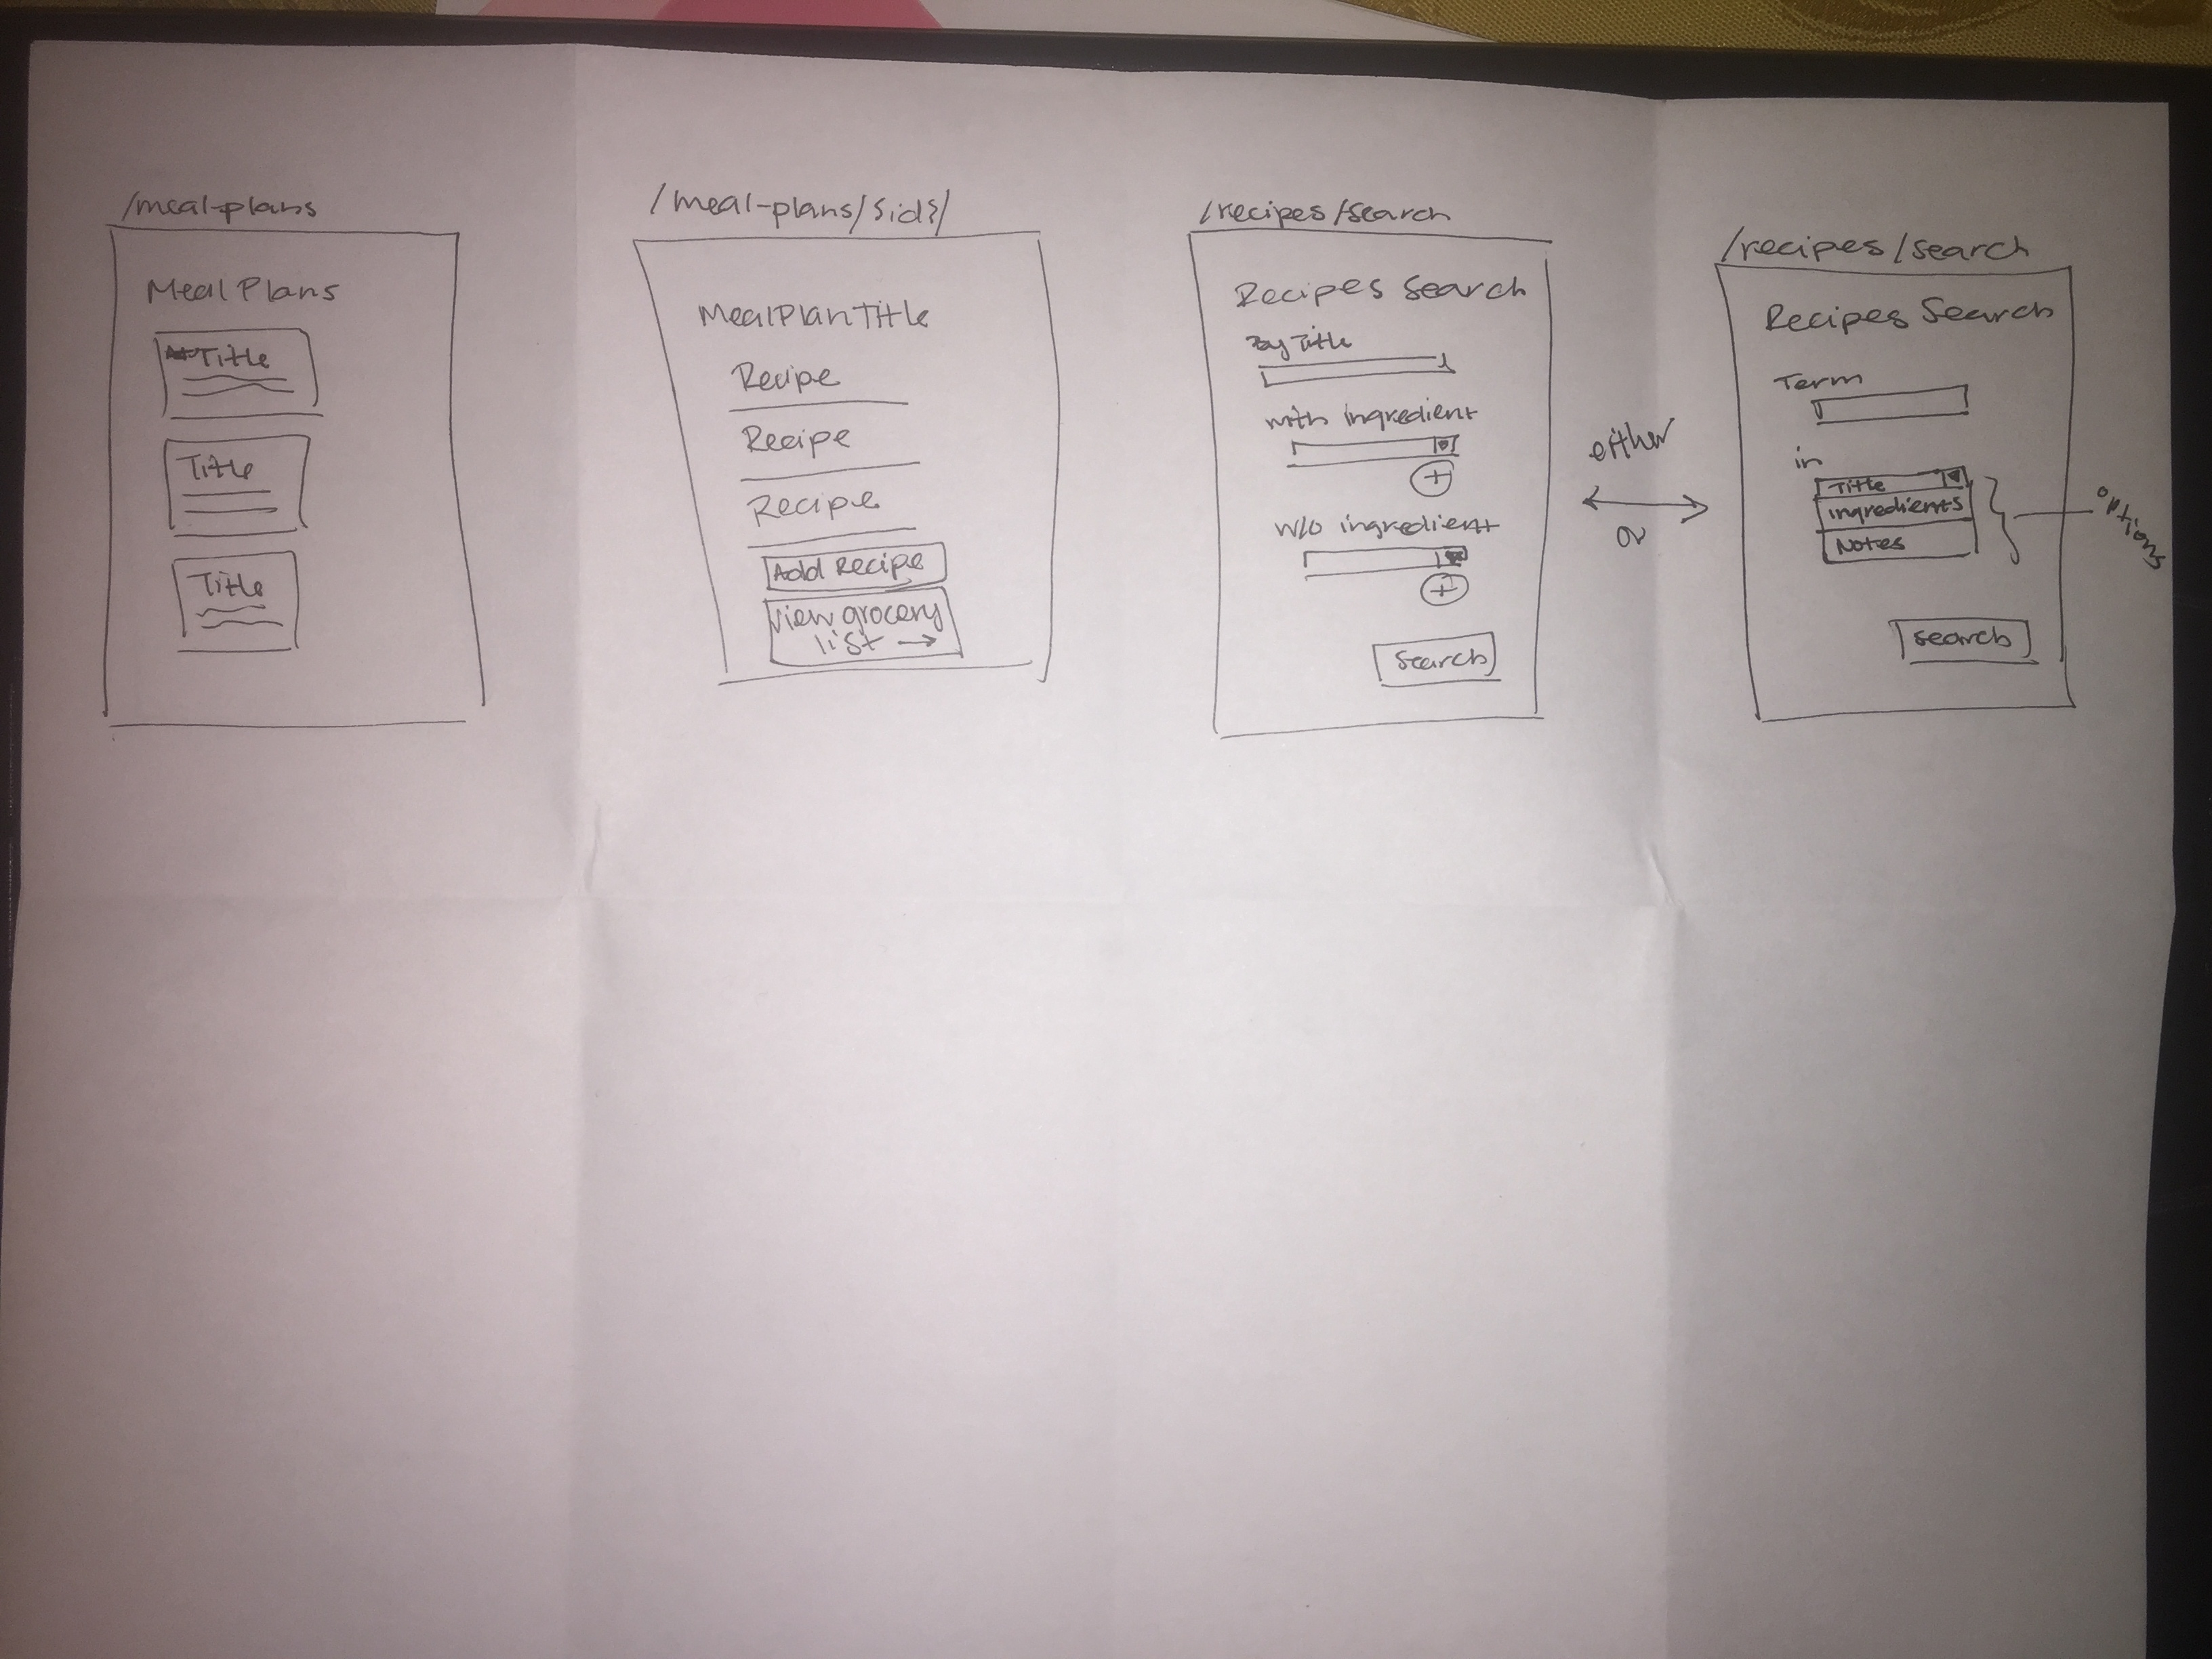 /meal-plans
Meal Plans
Title
Title
Title
/meal-plans/{id}/
Meal Plan Title
Recipe
Recipe
Recipe
Add Recipe
View grocery
list →
/recipes/search
Recipes Search
by Title
with ingredient
+
w/o ingredient
+
Search
either
or
/recipes/search
Recipes Search
Term
in
Title
ingredients
Notes
options
Search